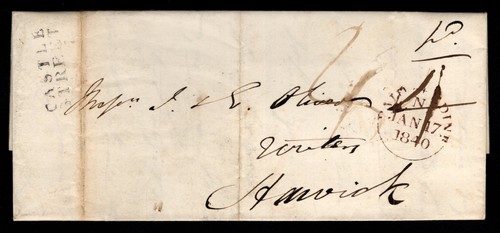 CASTLE
STREET
Pd.
4
Messrs J. & E. Oliver
Writers
Hawick
JAN 17
1840